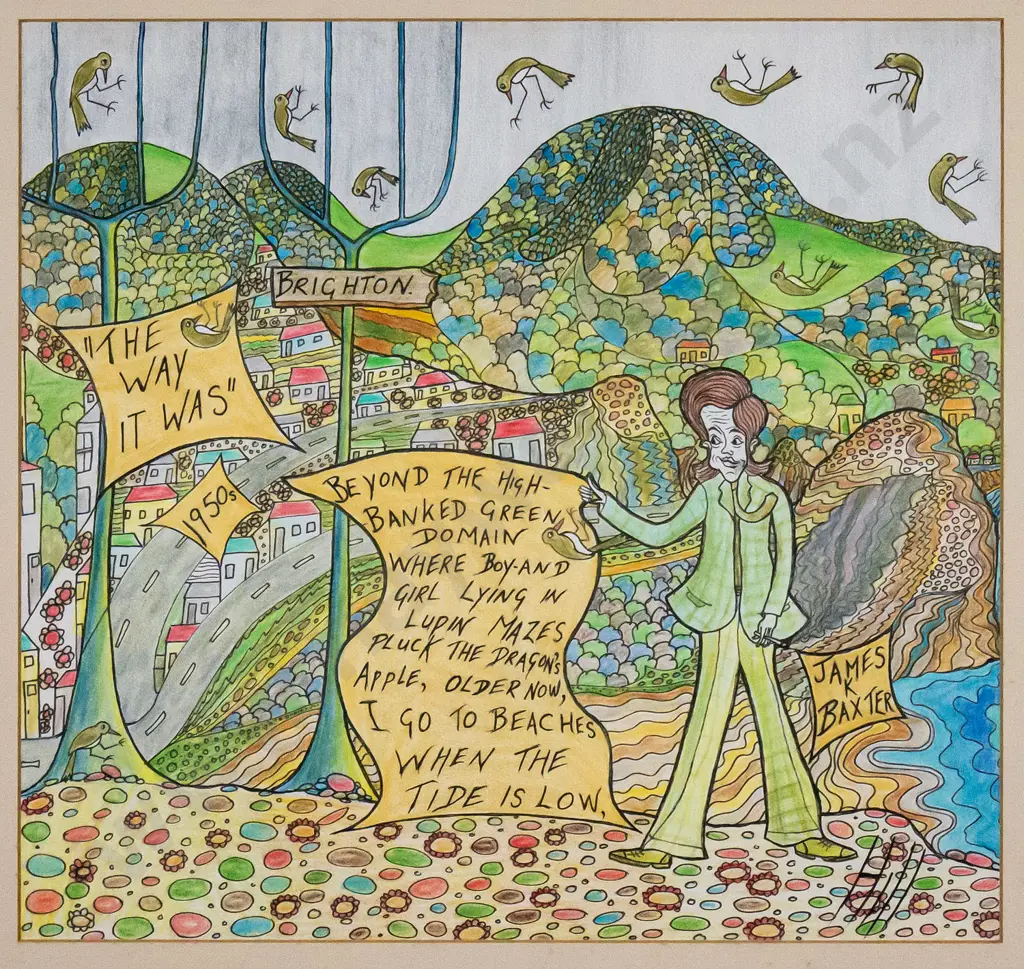 "THE
WAY
IT WAS"
BRIGHTON.
1950s
BEYOND THE HIGH-
BANKED GREEN
DOMAIN
WHERE BOY-AND
GIRL LYING IN
LUPIN MAZES
PLUCK THE DRAGON'S
APPLE, OLDER NOW,
I GO TO BEACHES
WHEN THE
TIDE IS LOW,
JAMES
K
BAXTER
.nz